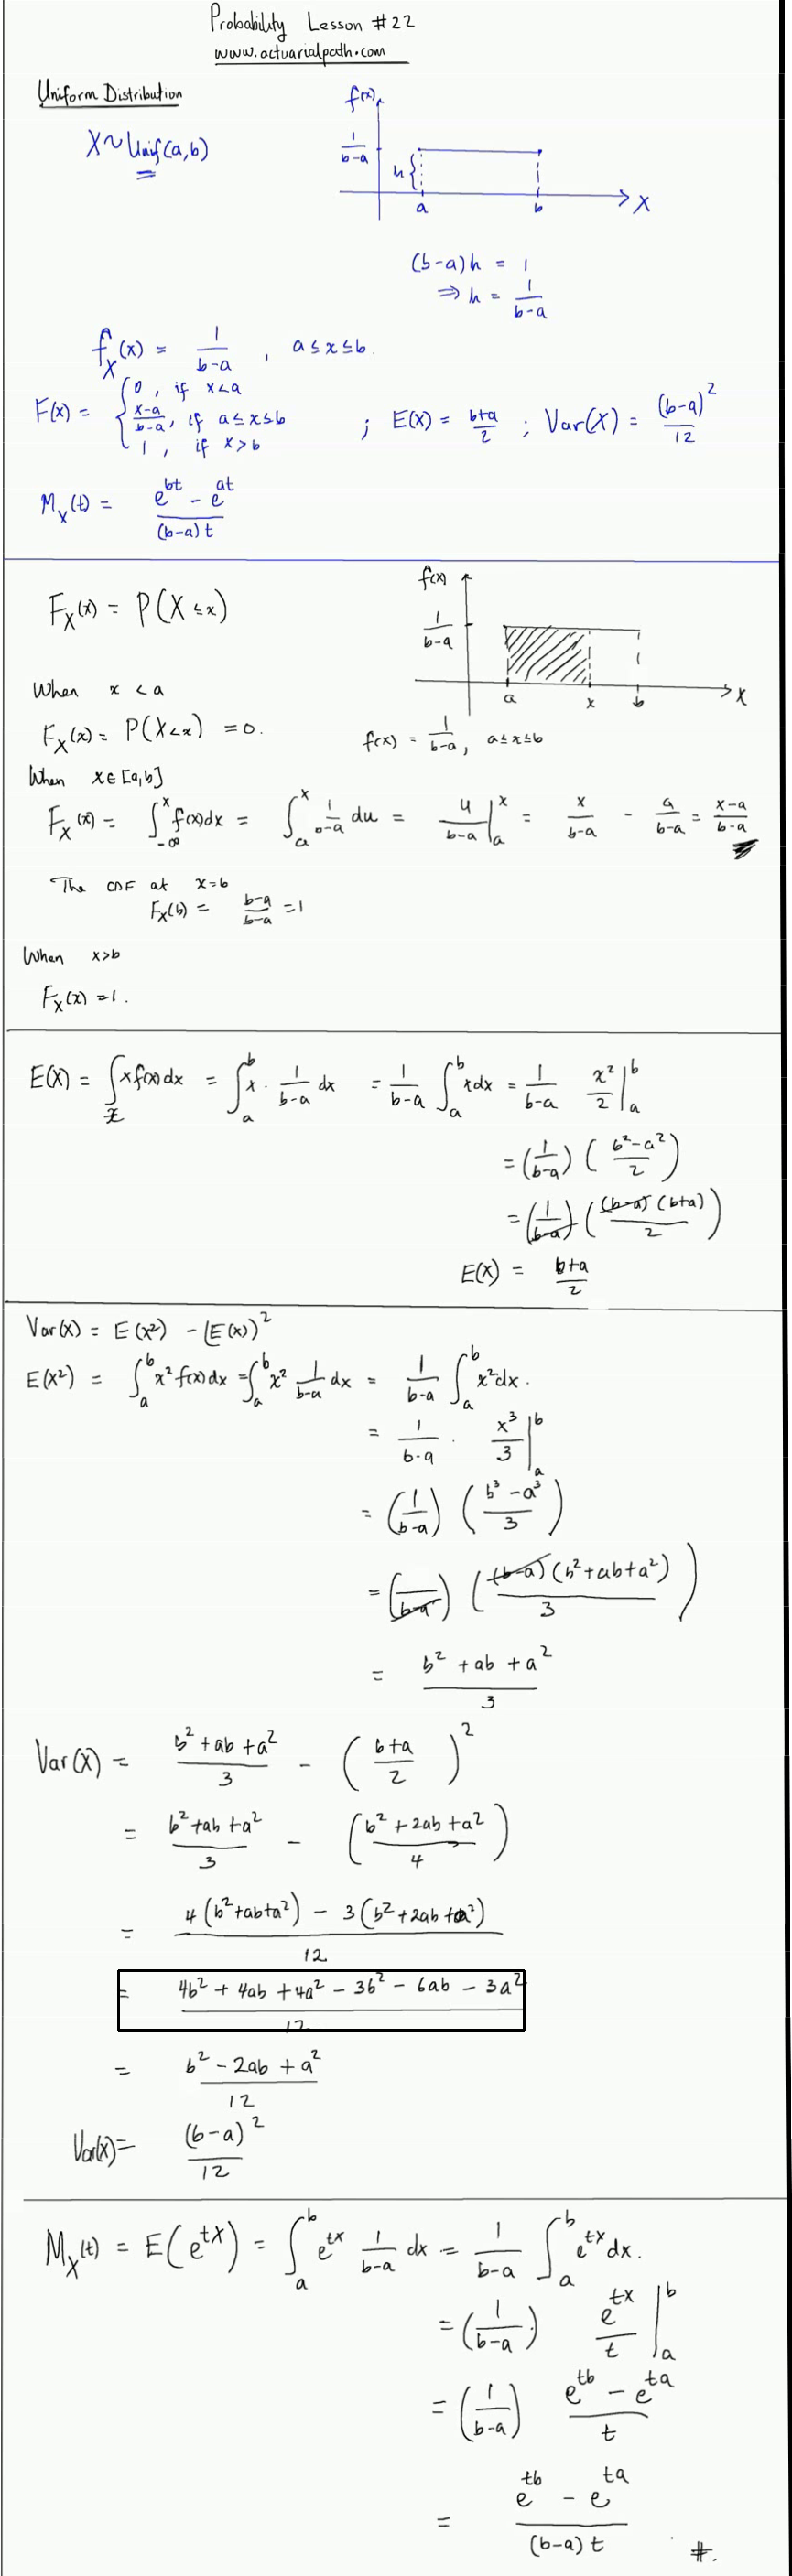 Probability Lesson #22
www.actuarialpath.com
Uniform Distribution
X ~ Unif(a,b)
f(x)
1/(b-a)
h {
a b X
(b-a)h = 1
⇒ h = 1/(b-a)
f_X(x) = 1/(b-a) , a ≤ x ≤ b.
F(x) = { 0, if x<a
(x-a)/(b-a), if a ≤ x ≤ b ; E(X) = (b+a)/2 ; Var(X) = (b-a)^2/12
1, if x>b
M_X(t) = (e^bt - e^at)/((b-a)t)
F_X(x) = P(X ≤ x)
f(x)
1/(b-a)
a x b X
f(x) = 1/(b-a), a ≤ x ≤ b
When x < a
F_X(x) = P(X<x) = 0.
When x ∈ [a,b]
F_X(x) = ∫_-∞^x f(x)dx = ∫_a^x 1/(b-a) du = u/(b-a) |_a^x = x/(b-a) - a/(b-a) = (x-a)/(b-a)
The CDF at x=b
F_X(b) = (b-a)/(b-a) = 1
When x>b
F_X(x) = 1.
E(X) = ∫_x x f(x) dx = ∫_a^b x · 1/(b-a) dx = 1/(b-a) ∫_a^b x dx = 1/(b-a) x²/2 |_a^b
= (1/(b-a)) ((b²-a²)/2)
= (1/(b-a)) ((b-a)(b+a)/2)
E(X) = (b+a)/2
Var(X) = E(X²) - (E(X))²
E(X²) = ∫_a^b x² f(x) dx = ∫_a^b x² 1/(b-a) dx = 1/(b-a) ∫_a^b x² dx.
= 1/(b-a) · x³/3 |_a^b
= (1/(b-a)) ((b³ - a³)/3)
= (1/(b-a)) ((b-a)(b²+ab+a²)/3)
= (b² + ab + a²)/3
Var(X) = (b² + ab + a²)/3 - ((b+a)/2)²
= (b² + ab + a²)/3 - ((b² + 2ab + a²)/4)
= (4(b²+ab+a²) - 3(b²+2ab+a²))/12
= (4b² + 4ab + 4a² - 3b² - 6ab - 3a²)/12
= (b² - 2ab + a²)/12
Var(X) = (b-a)²/12
M_X(t) = E(e^tX) = ∫_a^b e^tx 1/(b-a) dx = 1/(b-a) ∫_a^b e^tx dx.
= (1/(b-a)) e^tx/t |_a^b
= (1/(b-a)) (e^tb - e^ta)/t
= (e^tb - e^ta)/((b-a)t) #.